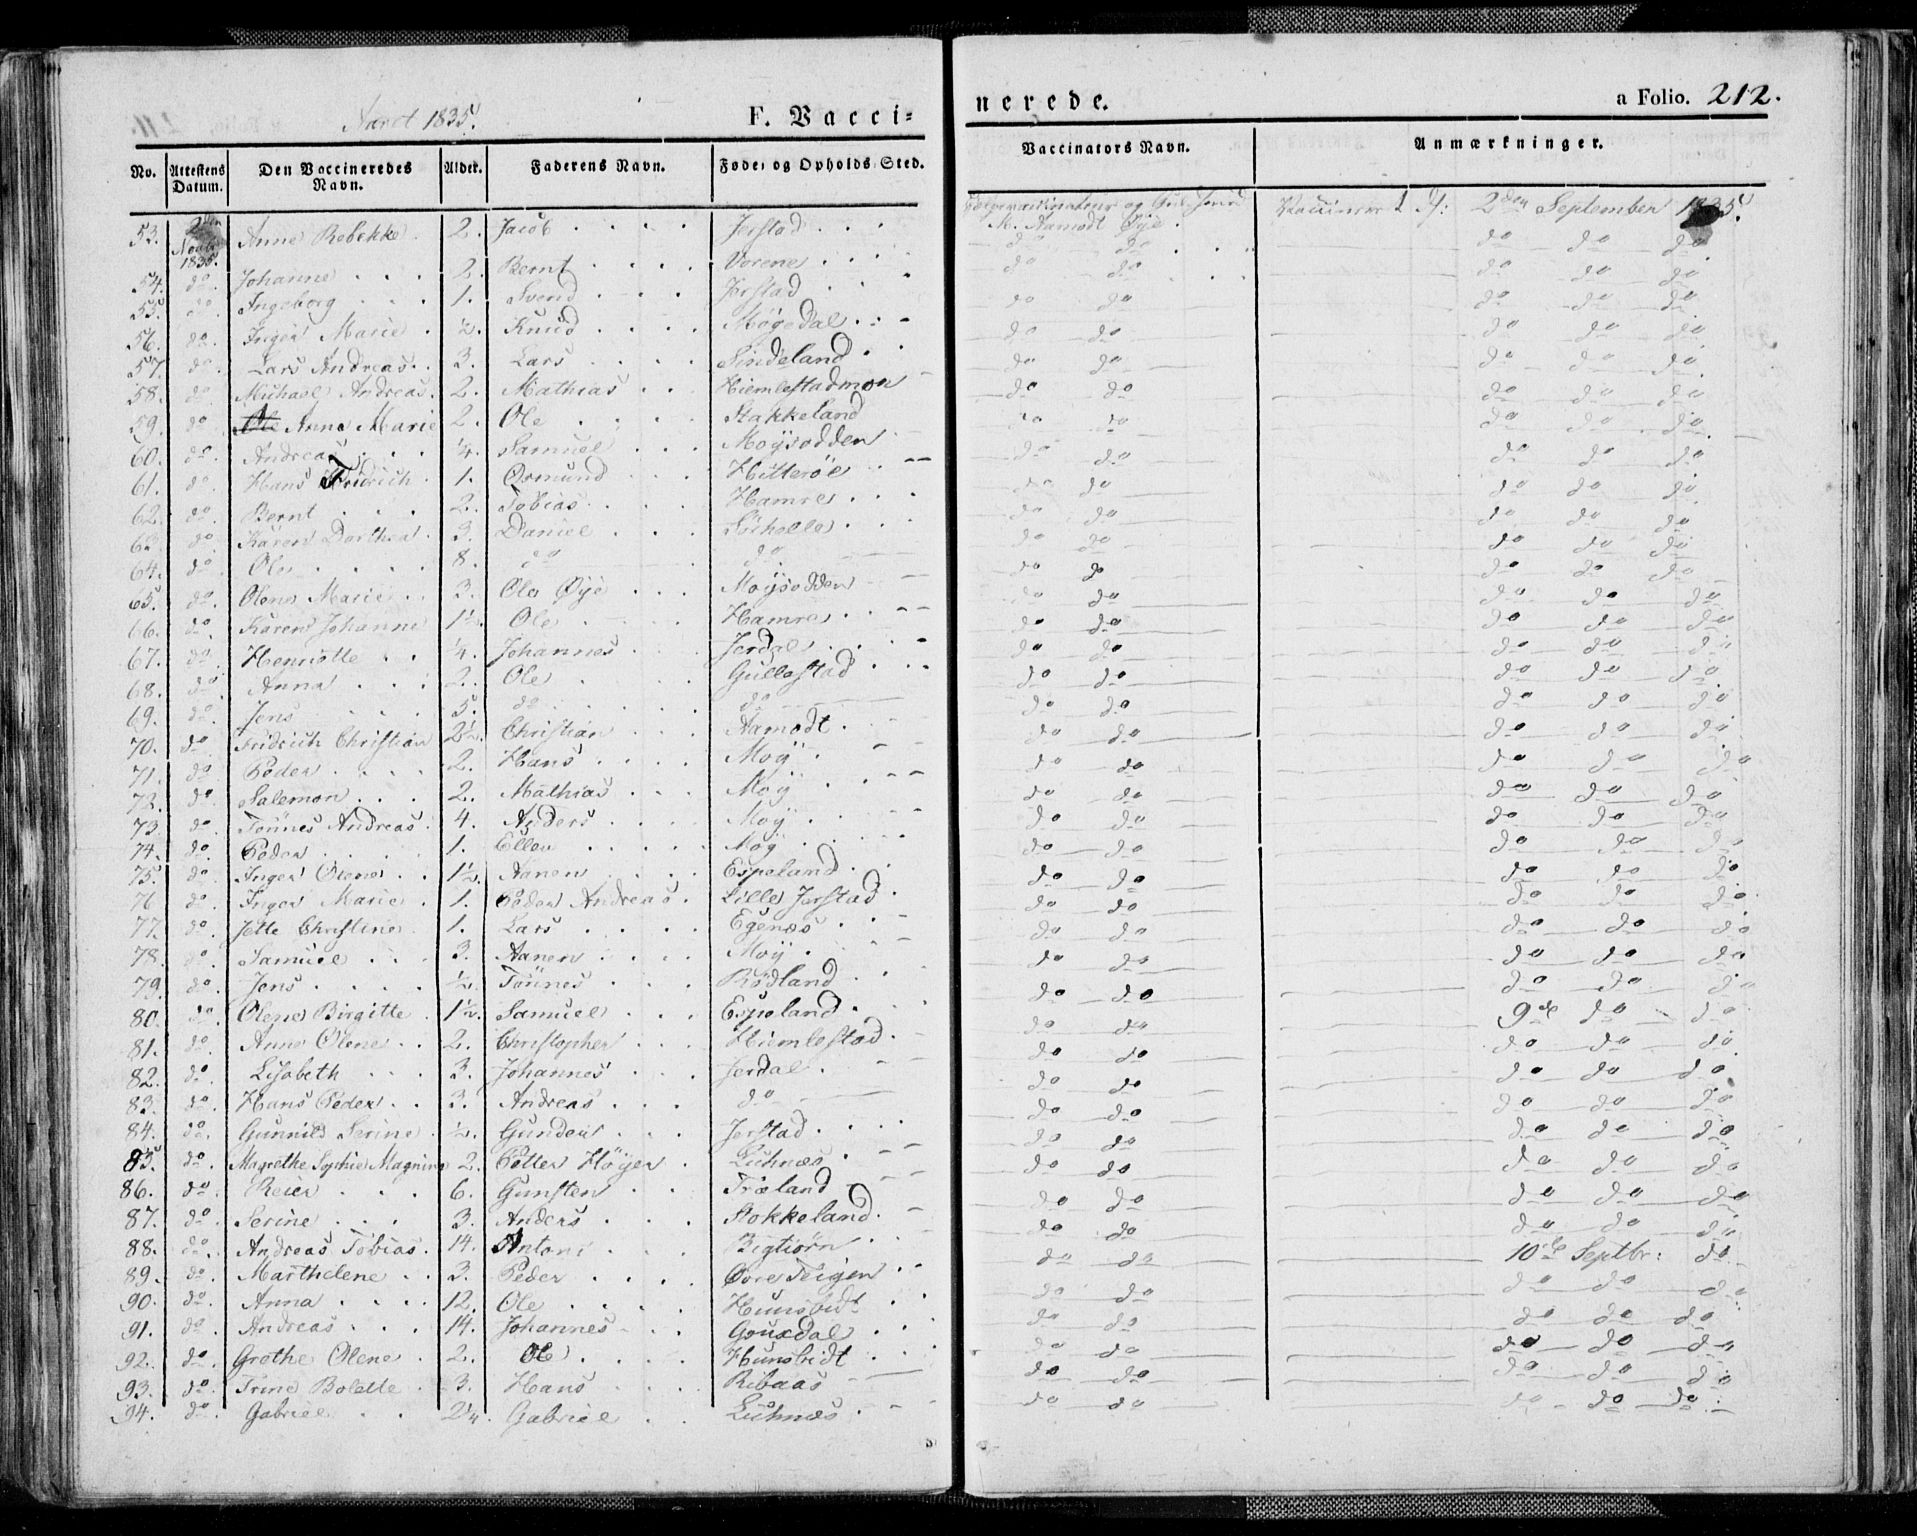 Aaret 1835.
F. Vacci-
nerede.
a Folio. 212.
No. Attestens Datum. Den Vaccineredes Navn. Alder. Faderens Navn. Føde- og Opholds-Sted. Vaccinators Navn. Anmærkninger.
53. 2den Novbr 1835. Anne Rebekke. 2. Jacob Jerstad M. Aamodt Øye. Vaccineret d. 2den September 1835.
54. do. Johanne 2. Bernt Vorene do do do do do
55. do. Ingeborg 1. Svend Jerstad do do do do do
56. do. Inger Marie. ½. Knud Møgedal do do do do do
57. do. Lars Andreas. 3. Lars Sindeland do do do do do
58. do. Michael Andreas. 2. Mathias Hiemlestadmoen do do do do do
59. do. Anna Marie 2. Ole Stakkeland do do do do do
60. do. Andreas ¼. Samuel Moysodden do do do do do
61. do. Hans Fridrich. 1. Osmund Hitterøe do do do do do
62. do. Bernt 2. Tobias Hamre do do do do do
63. do. Karen Dorthea. 3. Daniel do do do do do
64. do. Ole 8. do do. do do do do do
65. do. Olene Marie 3. Ole Øye Moysodden do do do do do
66. do. Karen Johanne 1½. Ole Hamre do do do do do
67. do. Henriette ¼. Johannes Jerdal do do do do do
68. do. Anna 2. Ole Gullestad do do do do do
69. do. Jens 5. do do do do do do do
70. do. Fridrich Christian 2½. Christian Aamodt. do do do do do
71. do. Peder 2. Hans Moy do do do do do
72. do. Salemon 2. Mathias Moy do do do do do
73. do. Tönnes Andreas. 4. Anders Moy do do do do do
74. do. Peder 1. Ellev Moy do do do do do
75. do. Inger Olene 1½. Aanen Espeland do do do do do
76. do. Inger Marie. 1. Peder Andreas. Lille Jerstad. do do do do do
77. do. Jette Christine. 1. Lars Egenæs do do do do do
78. do. Samuel 3. Aanen Moy do do do do do
79. do. Jens ½. Tönnes Rödland do do do do do
80. do. Olene Birgitte 1½. Samuel Espeland. do do 9de do do
81. do. Anne Olene 2. Christopher Hiemlestad do do do do do
82. do. Lisabeth 3. Johannes Jerdal. do do do do do
83. do. Hans Peder 3. Andreas do do do do do do
84. do. Gunnild Serine ½. Gunder Jerstad do do do do do
85. do. Magrethe Sophie Magnine 2. Petter Höyer Lithnæs do do do do do
86. do. Reier 6. Gunsten Træland do do do do do
87. do. Serine 3. Anders Stokkeland. do do do do do
88. do. Andreas Tobias. 14. Antoni Bigtiörn do do 10de Septbr: do
89. do. Marthelene 3. Peder Øvre Feigen do do do do do
90. do. Anna 12. Ole Hunsbedt do do do do do
91. do. Andreas 14. Johannes do do do do do
92. do. Grethe Olene 2. Ole Hunsbedt do do do do do
93. do. Trine Bolette 3. Hans Ribaas do do do do do
94. do. Gabriel 2¼. Gabriel Lithnæs do do do do do